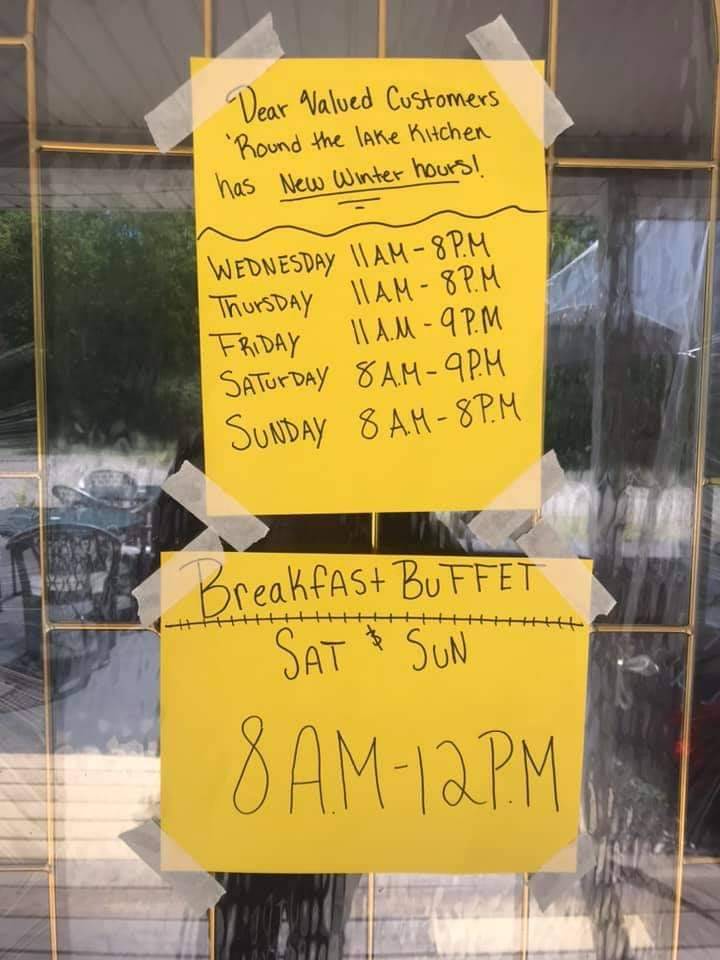 Dear Valued Customers
'Round the lake Kitchen
has New Winter hours!
WEDNESDAY 11AM-8P.M
ThursDAY 11AM-8P.M
FRIDAY 11A.M-9P.M
SATurDAY 8A.M-9P.M
SUNDAY 8A.M-8P.M
BreakfAst BuFFET
SAT & SUN
8A.M-12P.M